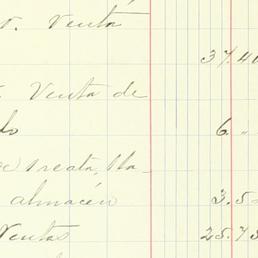 r. Venta
37.40
Venta de
do 6 "
de reata, Ha-
almacén 3.5
Ventas 25.75